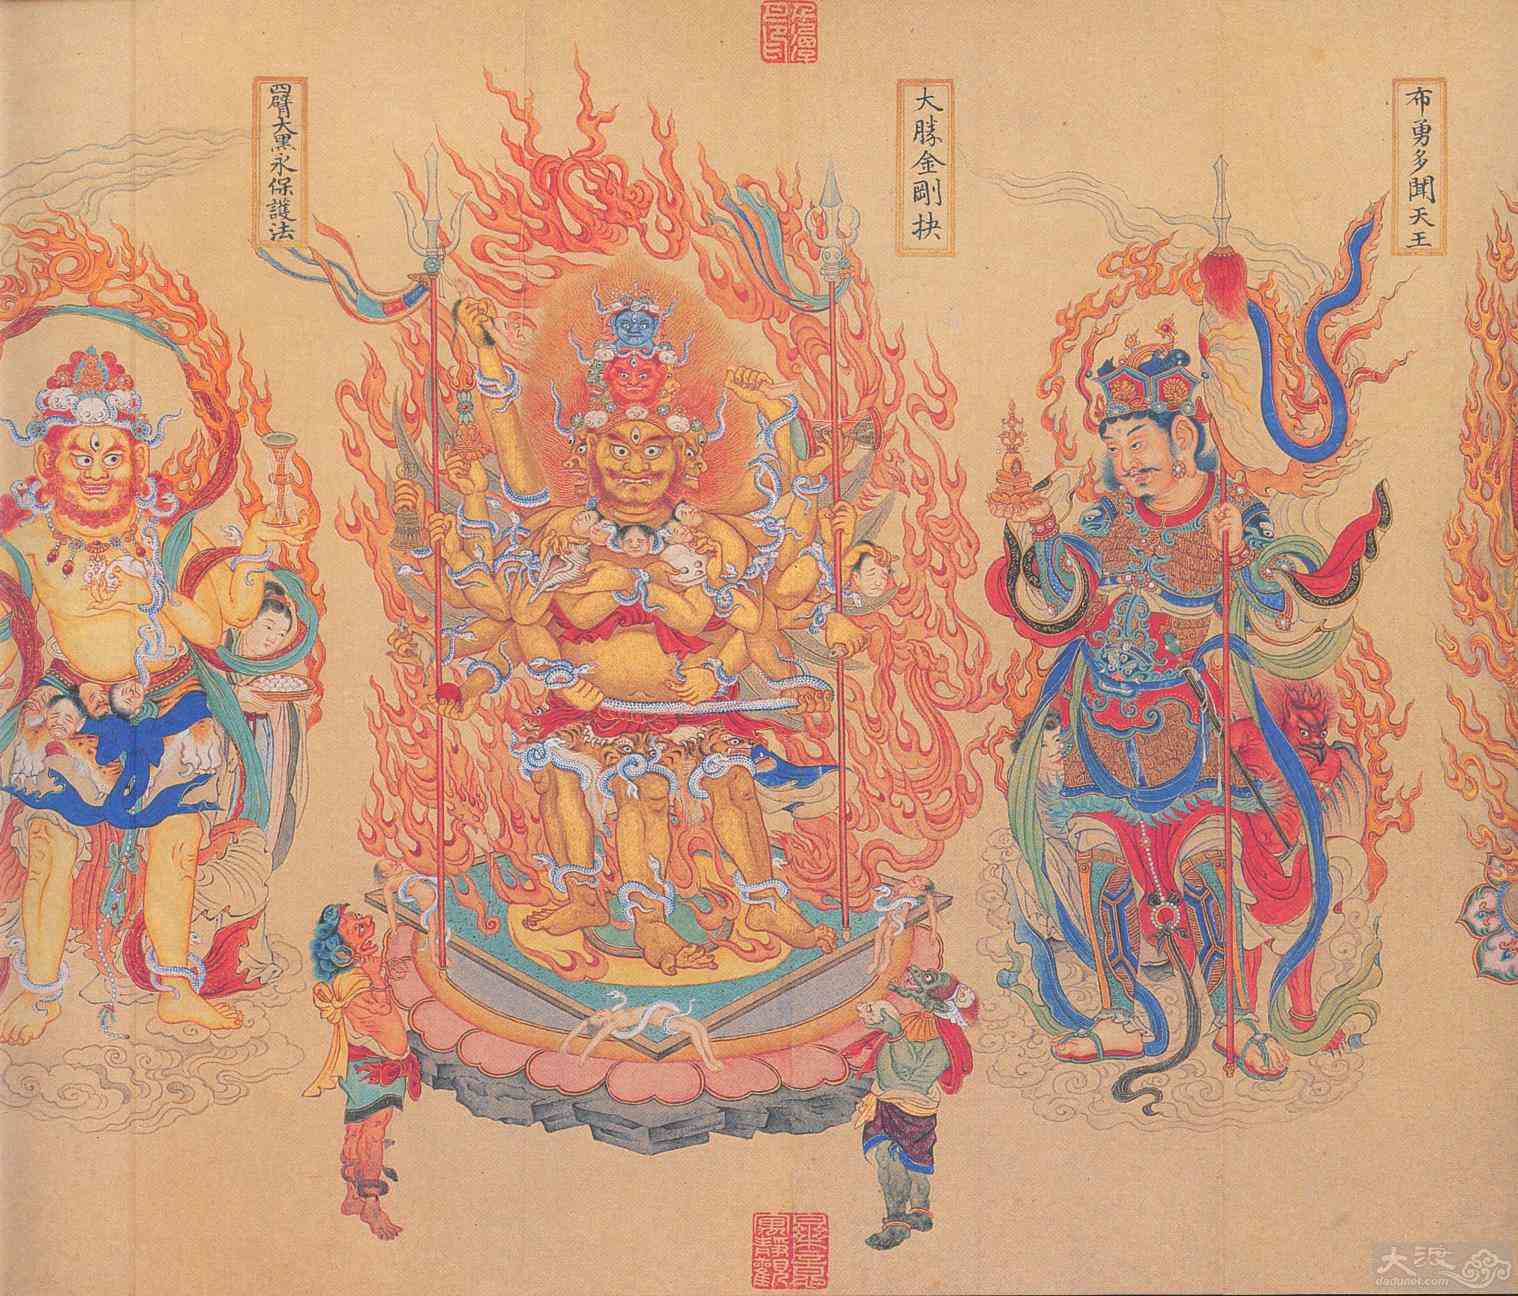 布勇多聞天王
大勝金剛抉
四臂大黑永保護法
大渡
dadunet.com